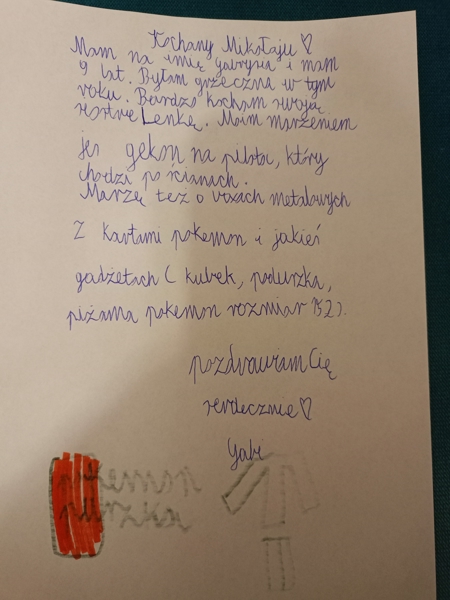 Kochany Mikołaju ♡
Mam na imię Gabrysia i mam
9 lat. Byłam grzeczna w tym
roku. Bardzo kocham swoją
siostrę Lenkę. Moim marzeniem
jes gekon na pilota, który
chodzi po ścianach.
Marzę też o boxach metalowych
z kartami pokemon i jakieś
gadżetach ( kubek, poduszka,
piżama pokemon rozmiar 152).
pozdrawiam Cię
serdecznie ♡
Gabi
pokemon
puszka